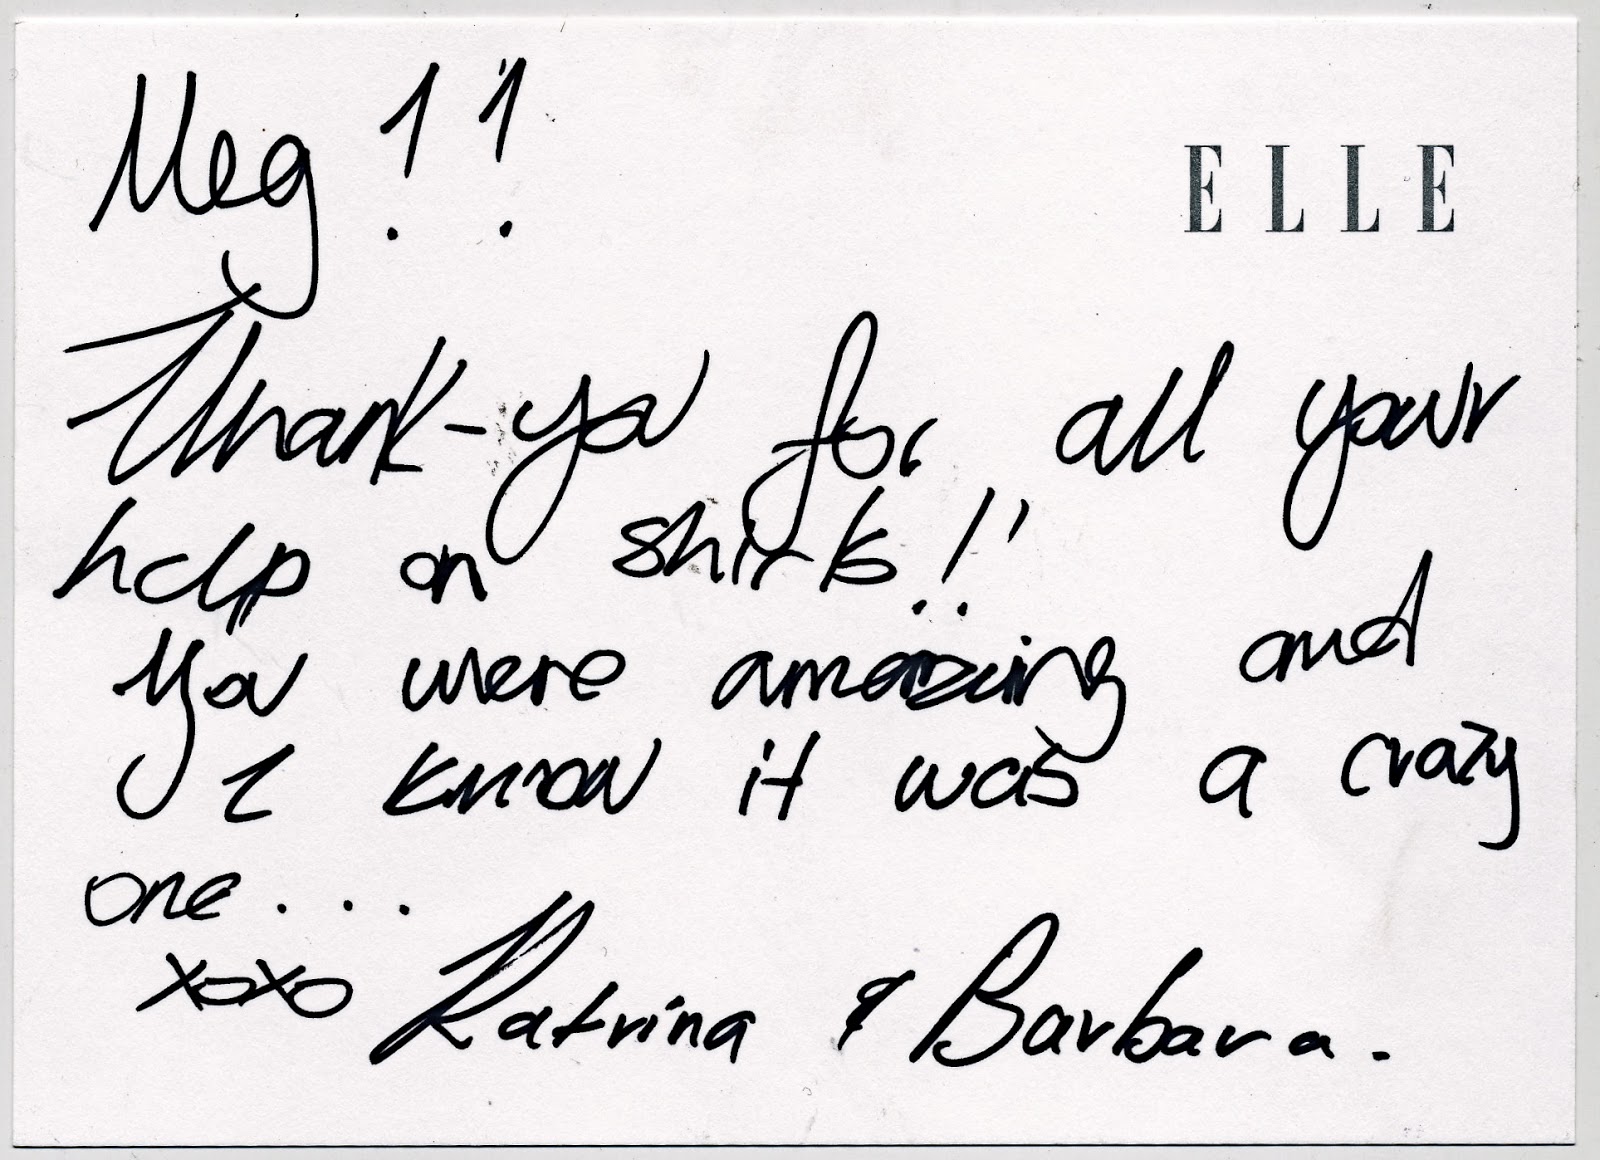 Meg!!
ELLE
Thank-you for all your
help on shirts!!
You were amazing and
I know it was a crazy
one...
xoxo Katrina & Barbara.